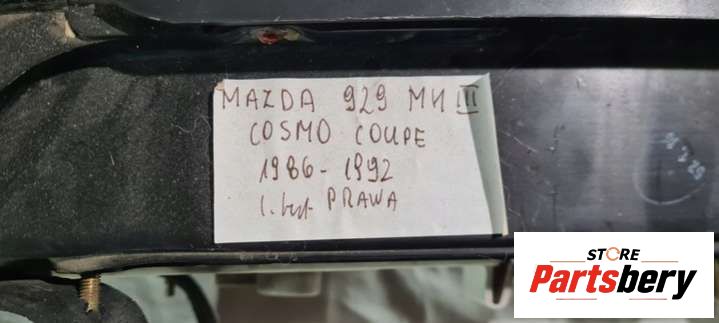 MAZDA 929 MK III
COSMO COUPE
1986-1992
PRAWA
STORE
Partsbery